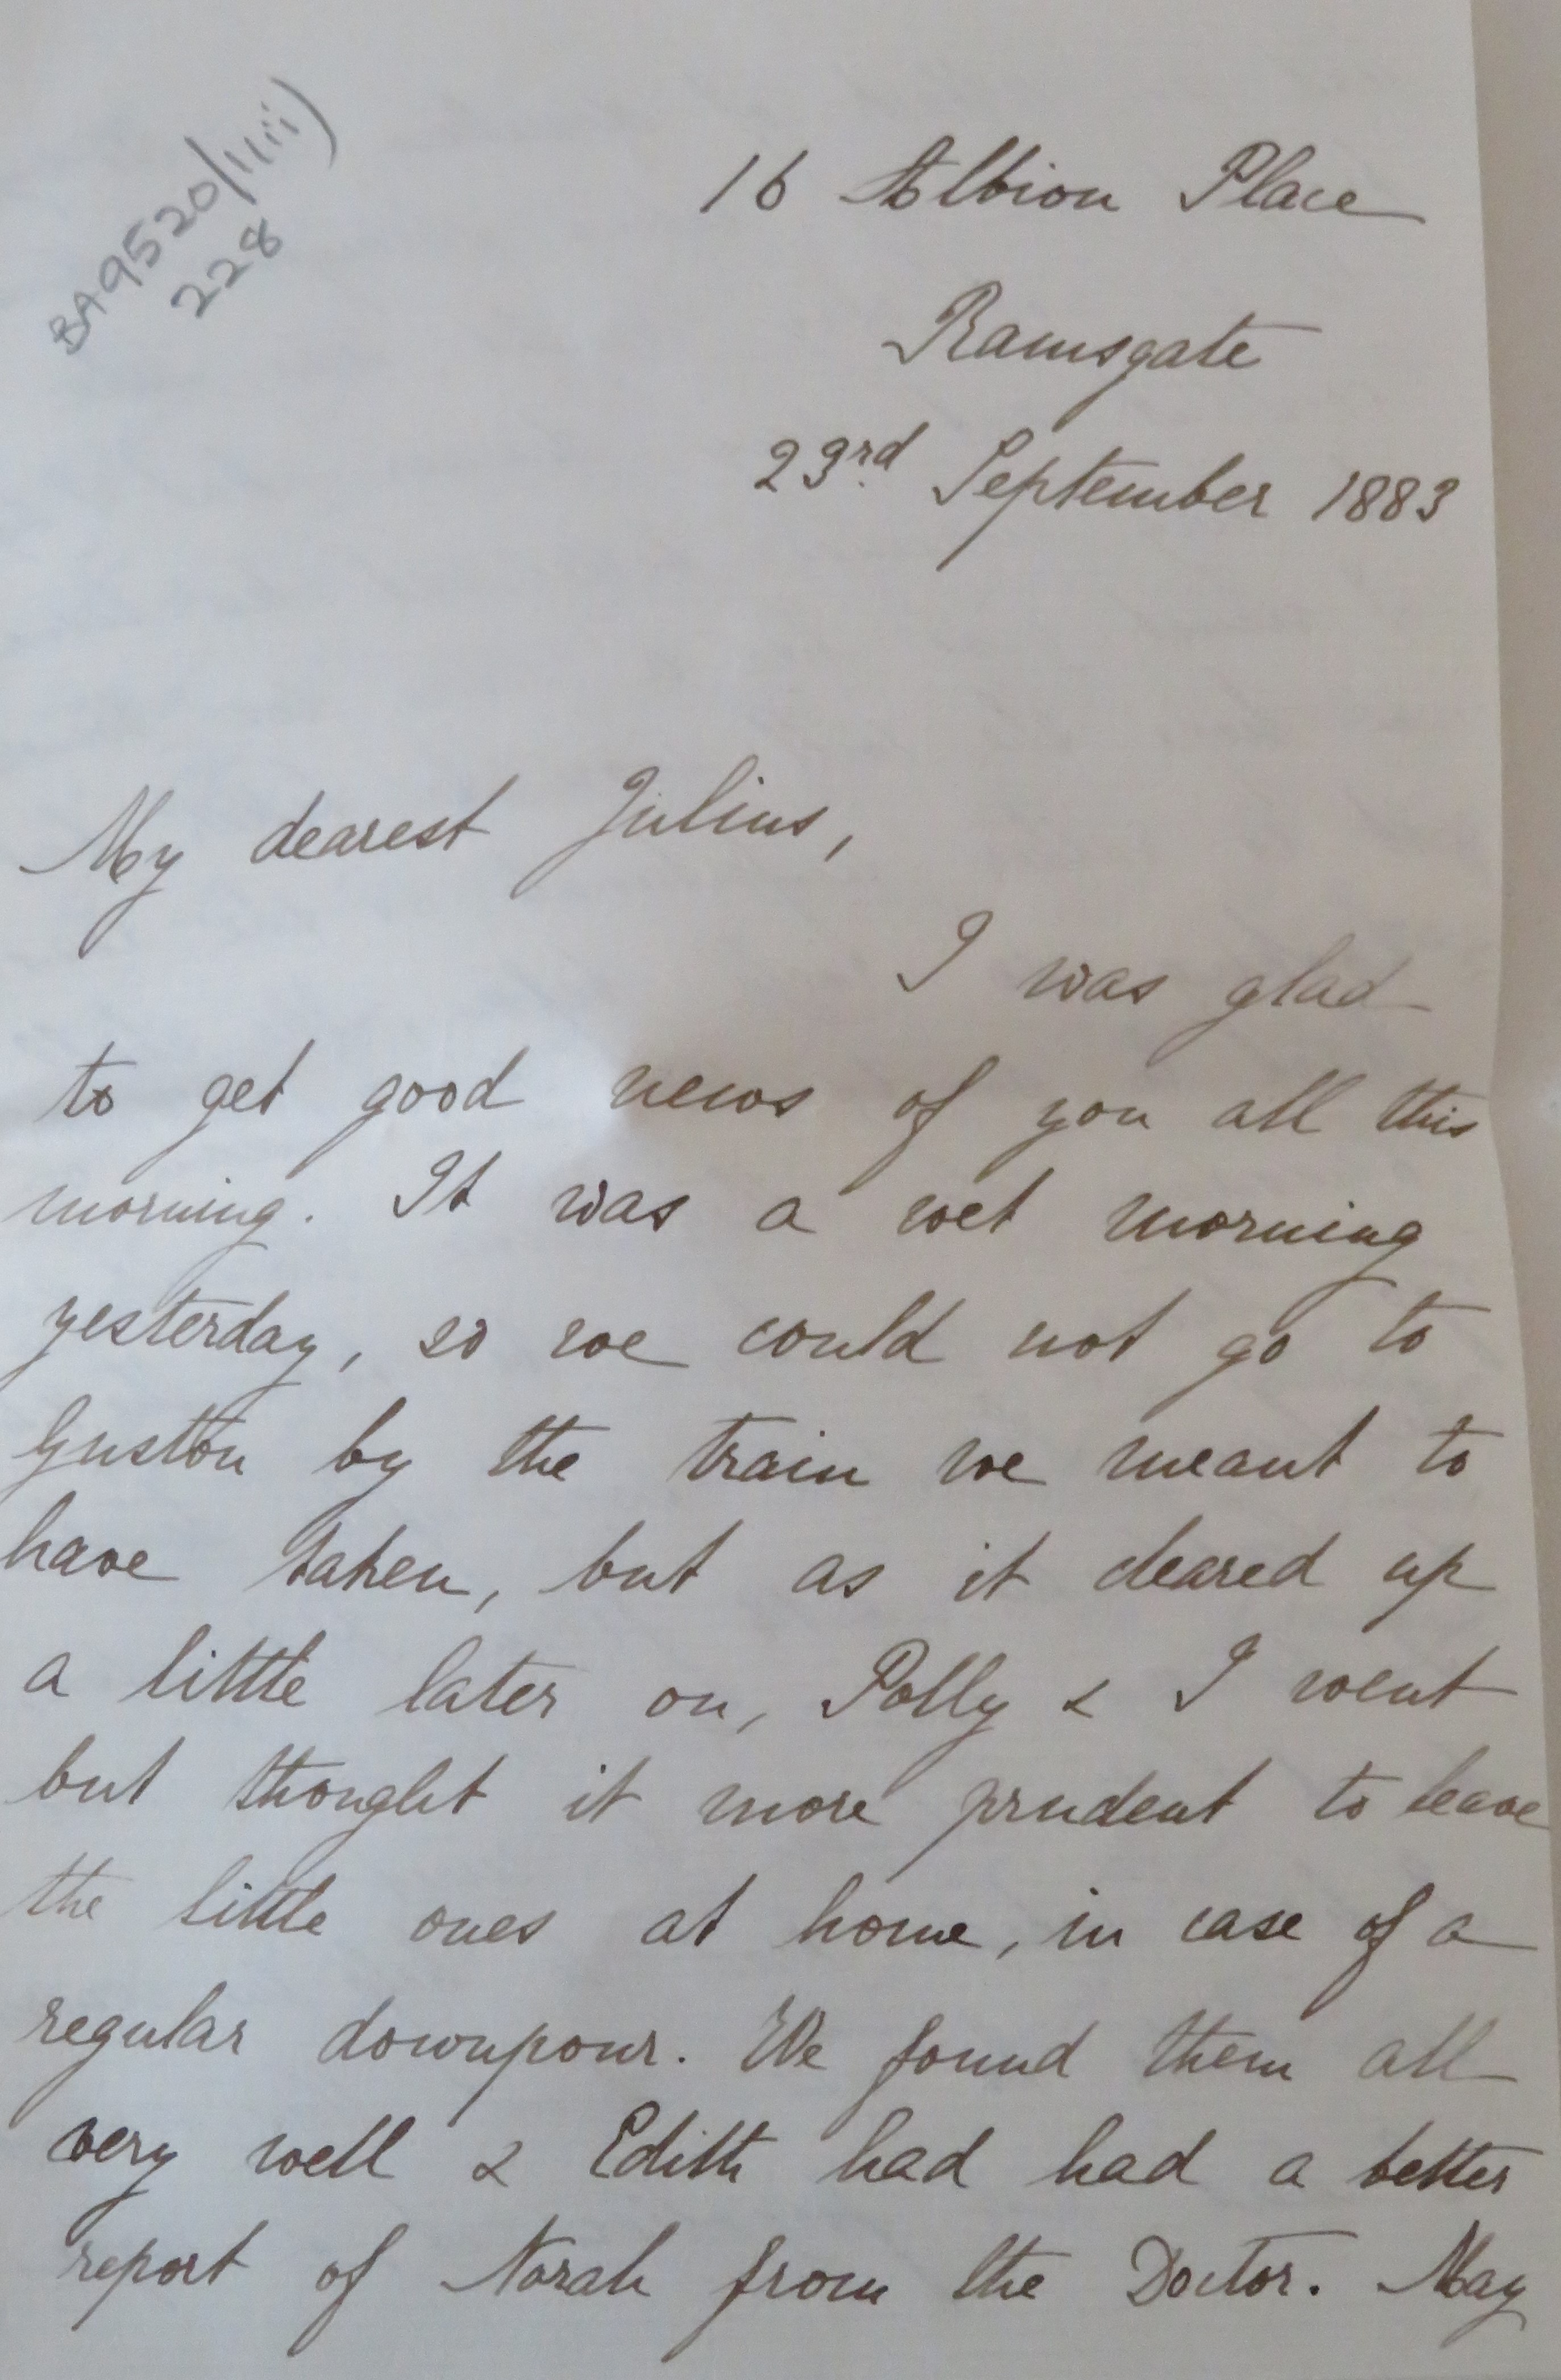 BA9520/1(iii)
228
16 Albion Place
Ramsgate
23rd September 1883
My dearest Julius,
I was glad
to get good news of you all this
morning. It was a wet morning
yesterday, so we could not go to
Guston by the train we meant to
have taken, but as it cleared up
a little later on, Polly & I went
but thought it more prudent to leave
the little ones at home, in case of a
regular downpour. We found them all
very well & Edith had had a better
report of Norah from the Doctor. May